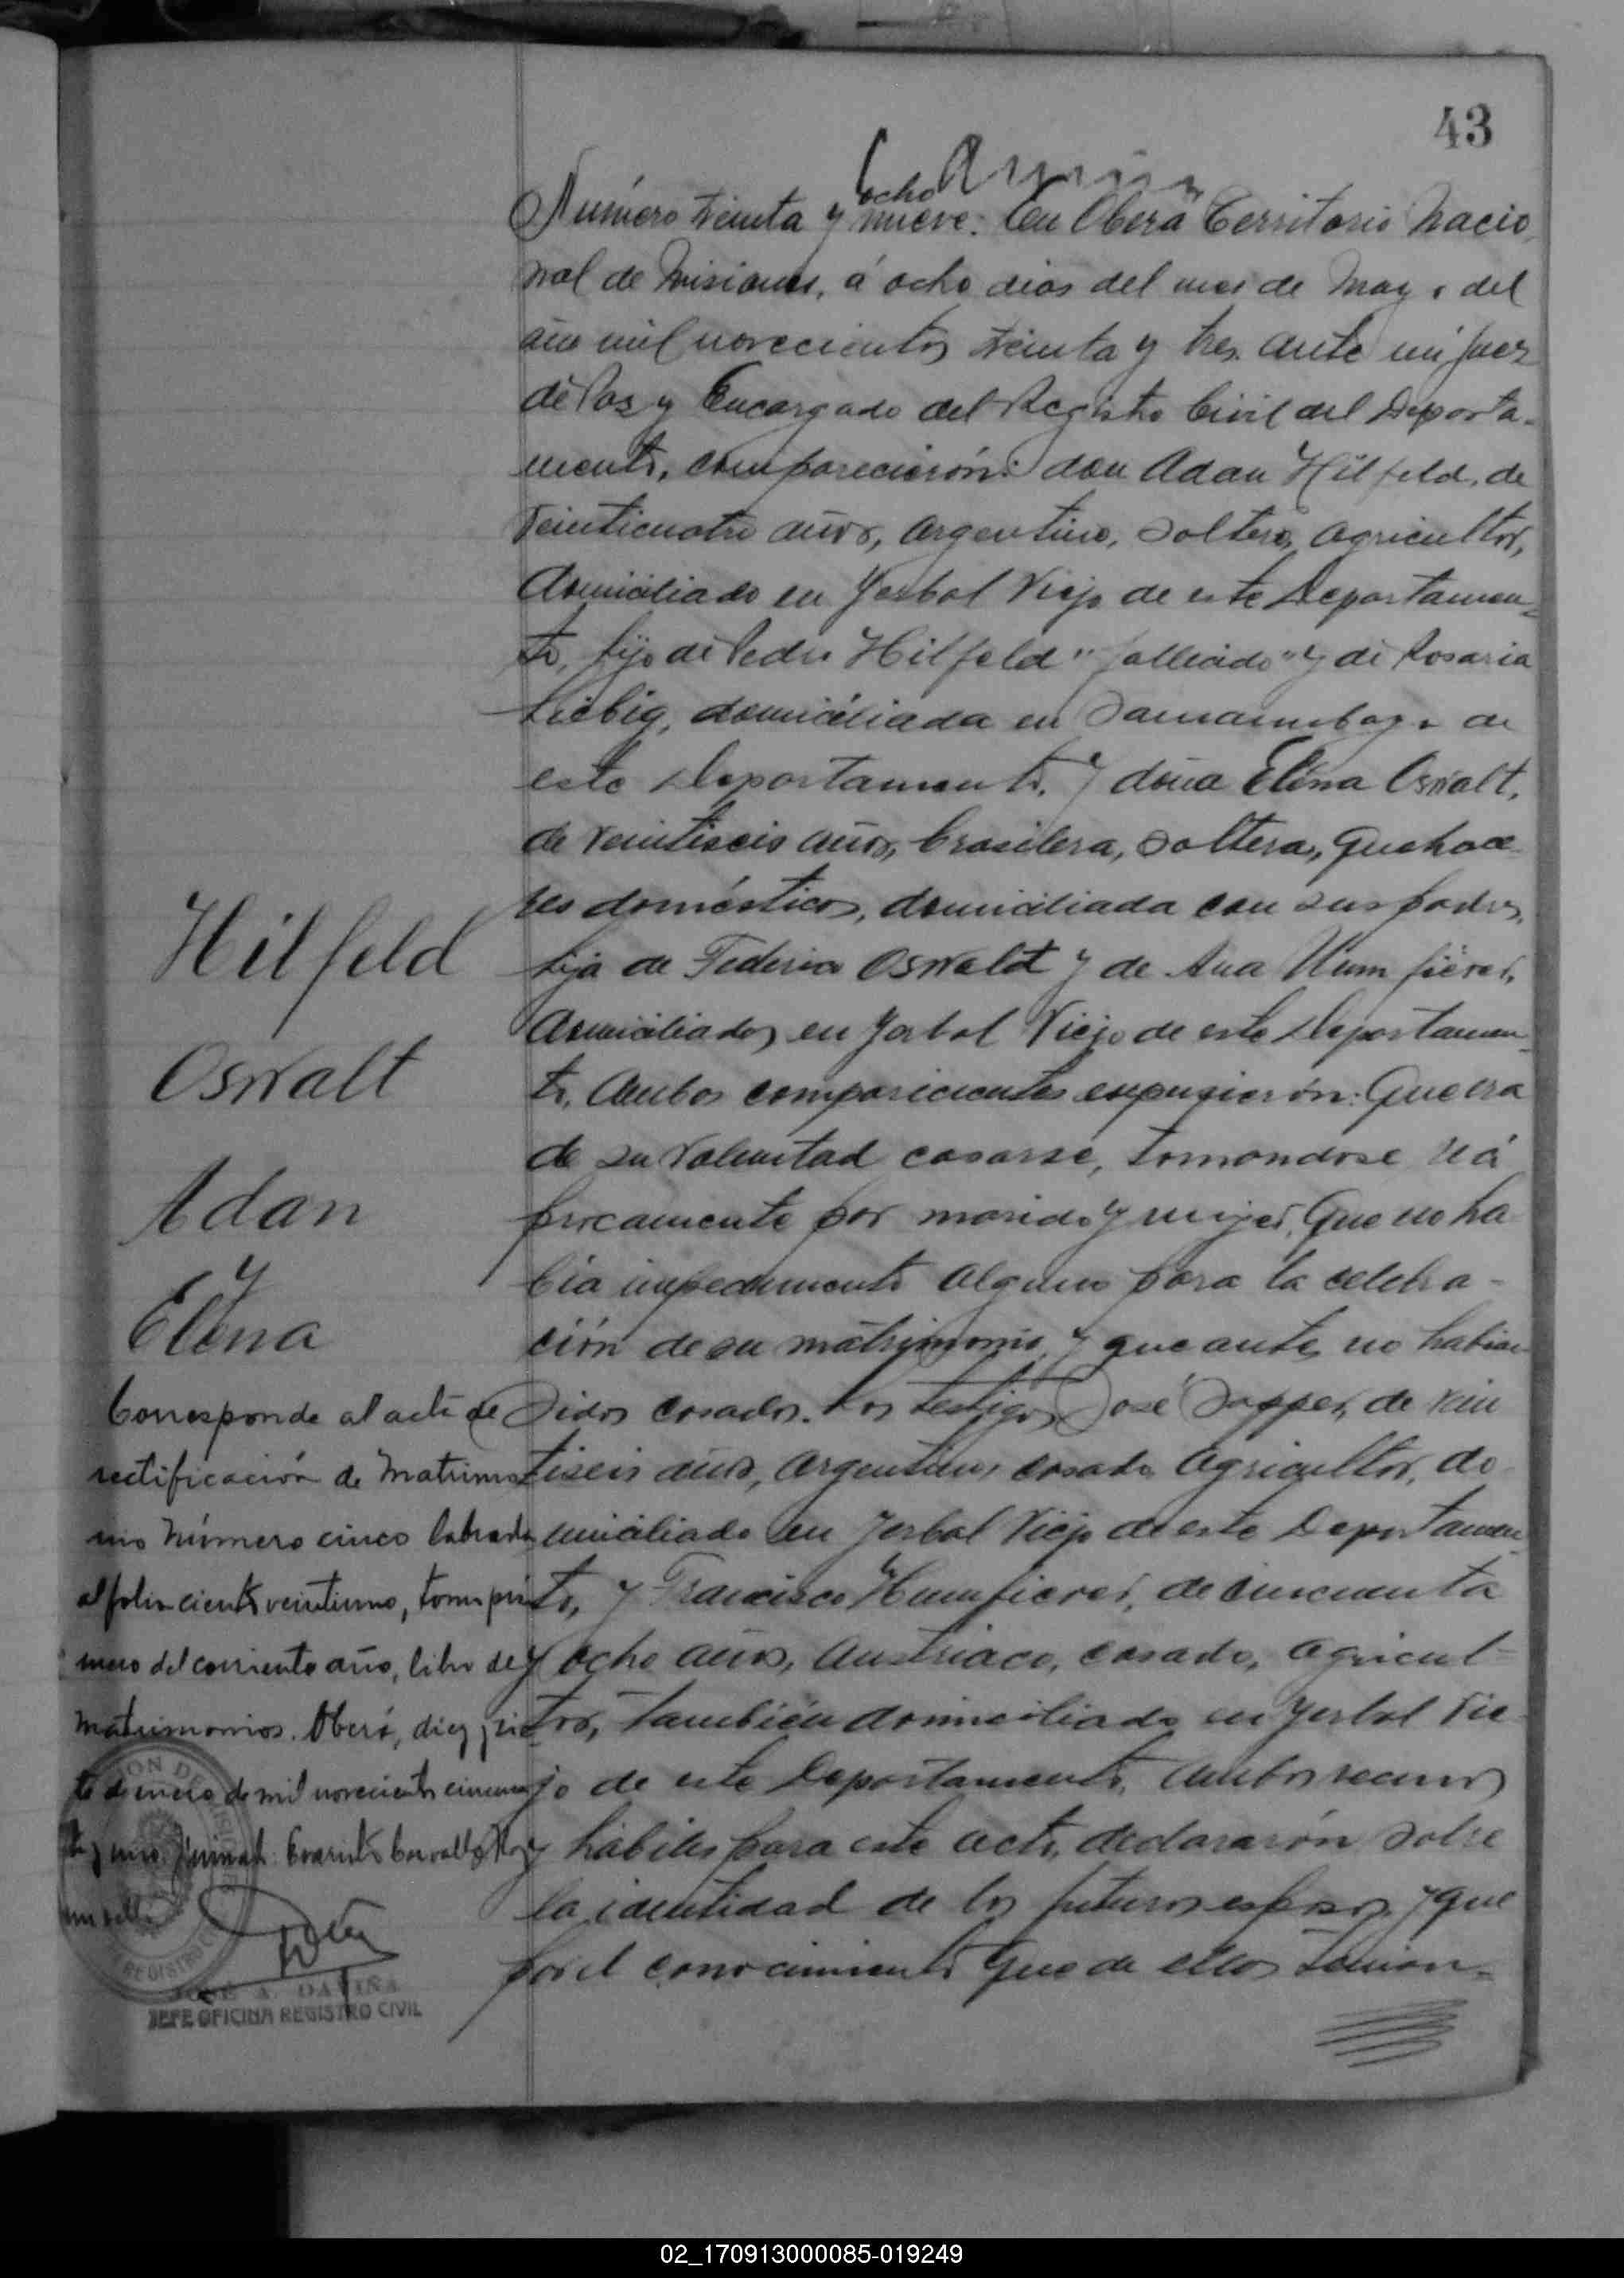 43
ocho
Número treinta y nueve: En Oberá Territorio Nacio
nal de Misiones, á ocho dias del mes de Mayo del
año mil novecientos treinta y tres. ante mi Juez
de Paz y Encargado del Registro Civil del Departa-
mento, comparecierón: don Adan Hilfeld, de
veinticuatro años, argentino, soltero, agricultor,
domiciliado en Yerbal Viejo de este Departamen-
to, hijo de Pedro Hilfeld "fallecido" y de Rosaria
Liebig, domiciliada en de
este Departamento. Y doña Elena Oswalt,
de veintiseis años, brasilera, soltera, quehace-
res domésticos, domiciliada con sus padres,
hija de Federico Oswald y de Ana Humfierer,
domiciliados en Yerbal Viejo de este Departamen-
to. Ambos comparecientes expusierón: Que era
de su voluntad casarse, tomandose reci
procamente por marido y mujer. Que no ha
bia impedimento alguno para la celebra-
ción de su matrimonio, y que antes no habian
sidos casados. Los testigos José Sapper, de vein
tiseis años, argentino, casado, agricultor, do-
miciliado en Yerbal Viejo de este Departamen-
to, y Francisco Humfierer, de cincuenta
y ocho años, austriaco, casado, agricul-
tor, también domiciliado en Yerbal Vie-
jo de este Departamento, ambos vecinos
y hábiles para este acto, declararón sobre
la identidad de los futuros esposos, y que
por el conocimiento que de ellos tenian-
Hilfeld
Oswalt
Adan
y
Elena
Corresponde al acta de
rectificación de Matrimo
nio Número cinco labrada
al folio ciento veintiuno, tomo pri
mero del corriente año, libro de
Matrimonios. Oberá, diez y sie
te de enero de mil novecientos cincuen
ta y uno. Firmado:
un sello
REGISTRO
JOSÉ A. DAVIÑA
JEFE OFICINA REGISTRO CIVIL
02_170913000085-019249